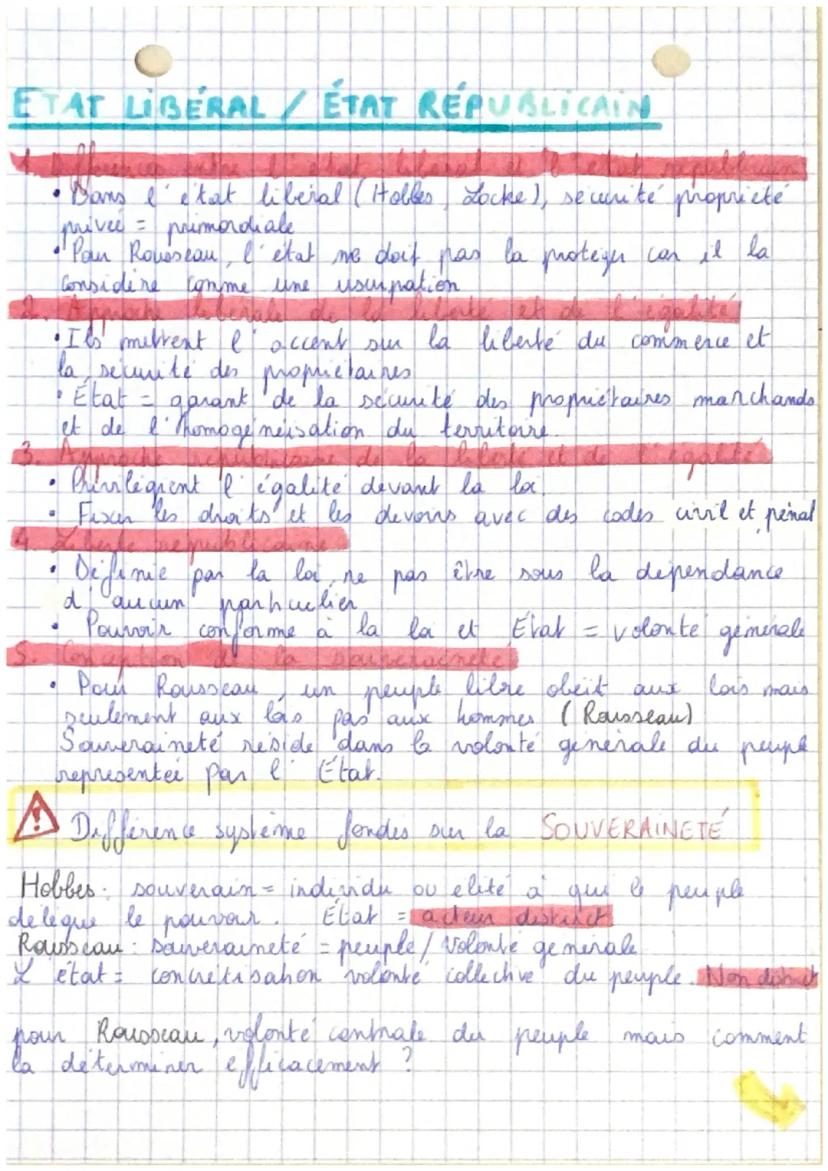 ETAT LIBÉRAL / ÉTAT RÉPUBLICAIN
1. Différences entre l'état libéral et l'état républicain
• Dans l'état libéral (Hobbes, Locke), sécurité propriété
privée = primordiale
• Pour Rousseau, l'état ne doit pas la protéger car il la
considère comme une usurpation
2. Approche libérale de la liberté et de l'égalité
• Ils mettent l'accent sur la liberté du commerce et
la sécurité des propriétaires
• État = garant de la sécurité des propriétaires marchands
et de l'homogénéisation du territoire.
3. Approche républicaine de la liberté et de l'égalité
• Privilégient l'égalité devant la loi.
• Fixer les droits et les devoirs avec des codes civil et pénal
4. Liberté républicaine
• Définie par la loi, ne pas être sous la dépendance
d'aucun particulier
• Pouvoir conforme à la loi et État = volonté générale
5. Conception de la souveraineté
• Pour Rousseau, un peuple libre obéit aux lois mais
seulement aux lois pas aux hommes (Rousseau)
Souveraineté réside dans la volonté générale du peuple
représentée par l'État.
Différence système fondés sur la SOUVERAINETÉ
Hobbes : souverain = individu ou élite à qui le peuple
délègue le pouvoir. État = acteur distinct
Rousseau : souveraineté = peuple / volonté générale
L'état = concrétisation volonté collective du peuple. Non distinct
pour Rousseau, volonté centrale du peuple mais comment
la déterminer efficacement ?